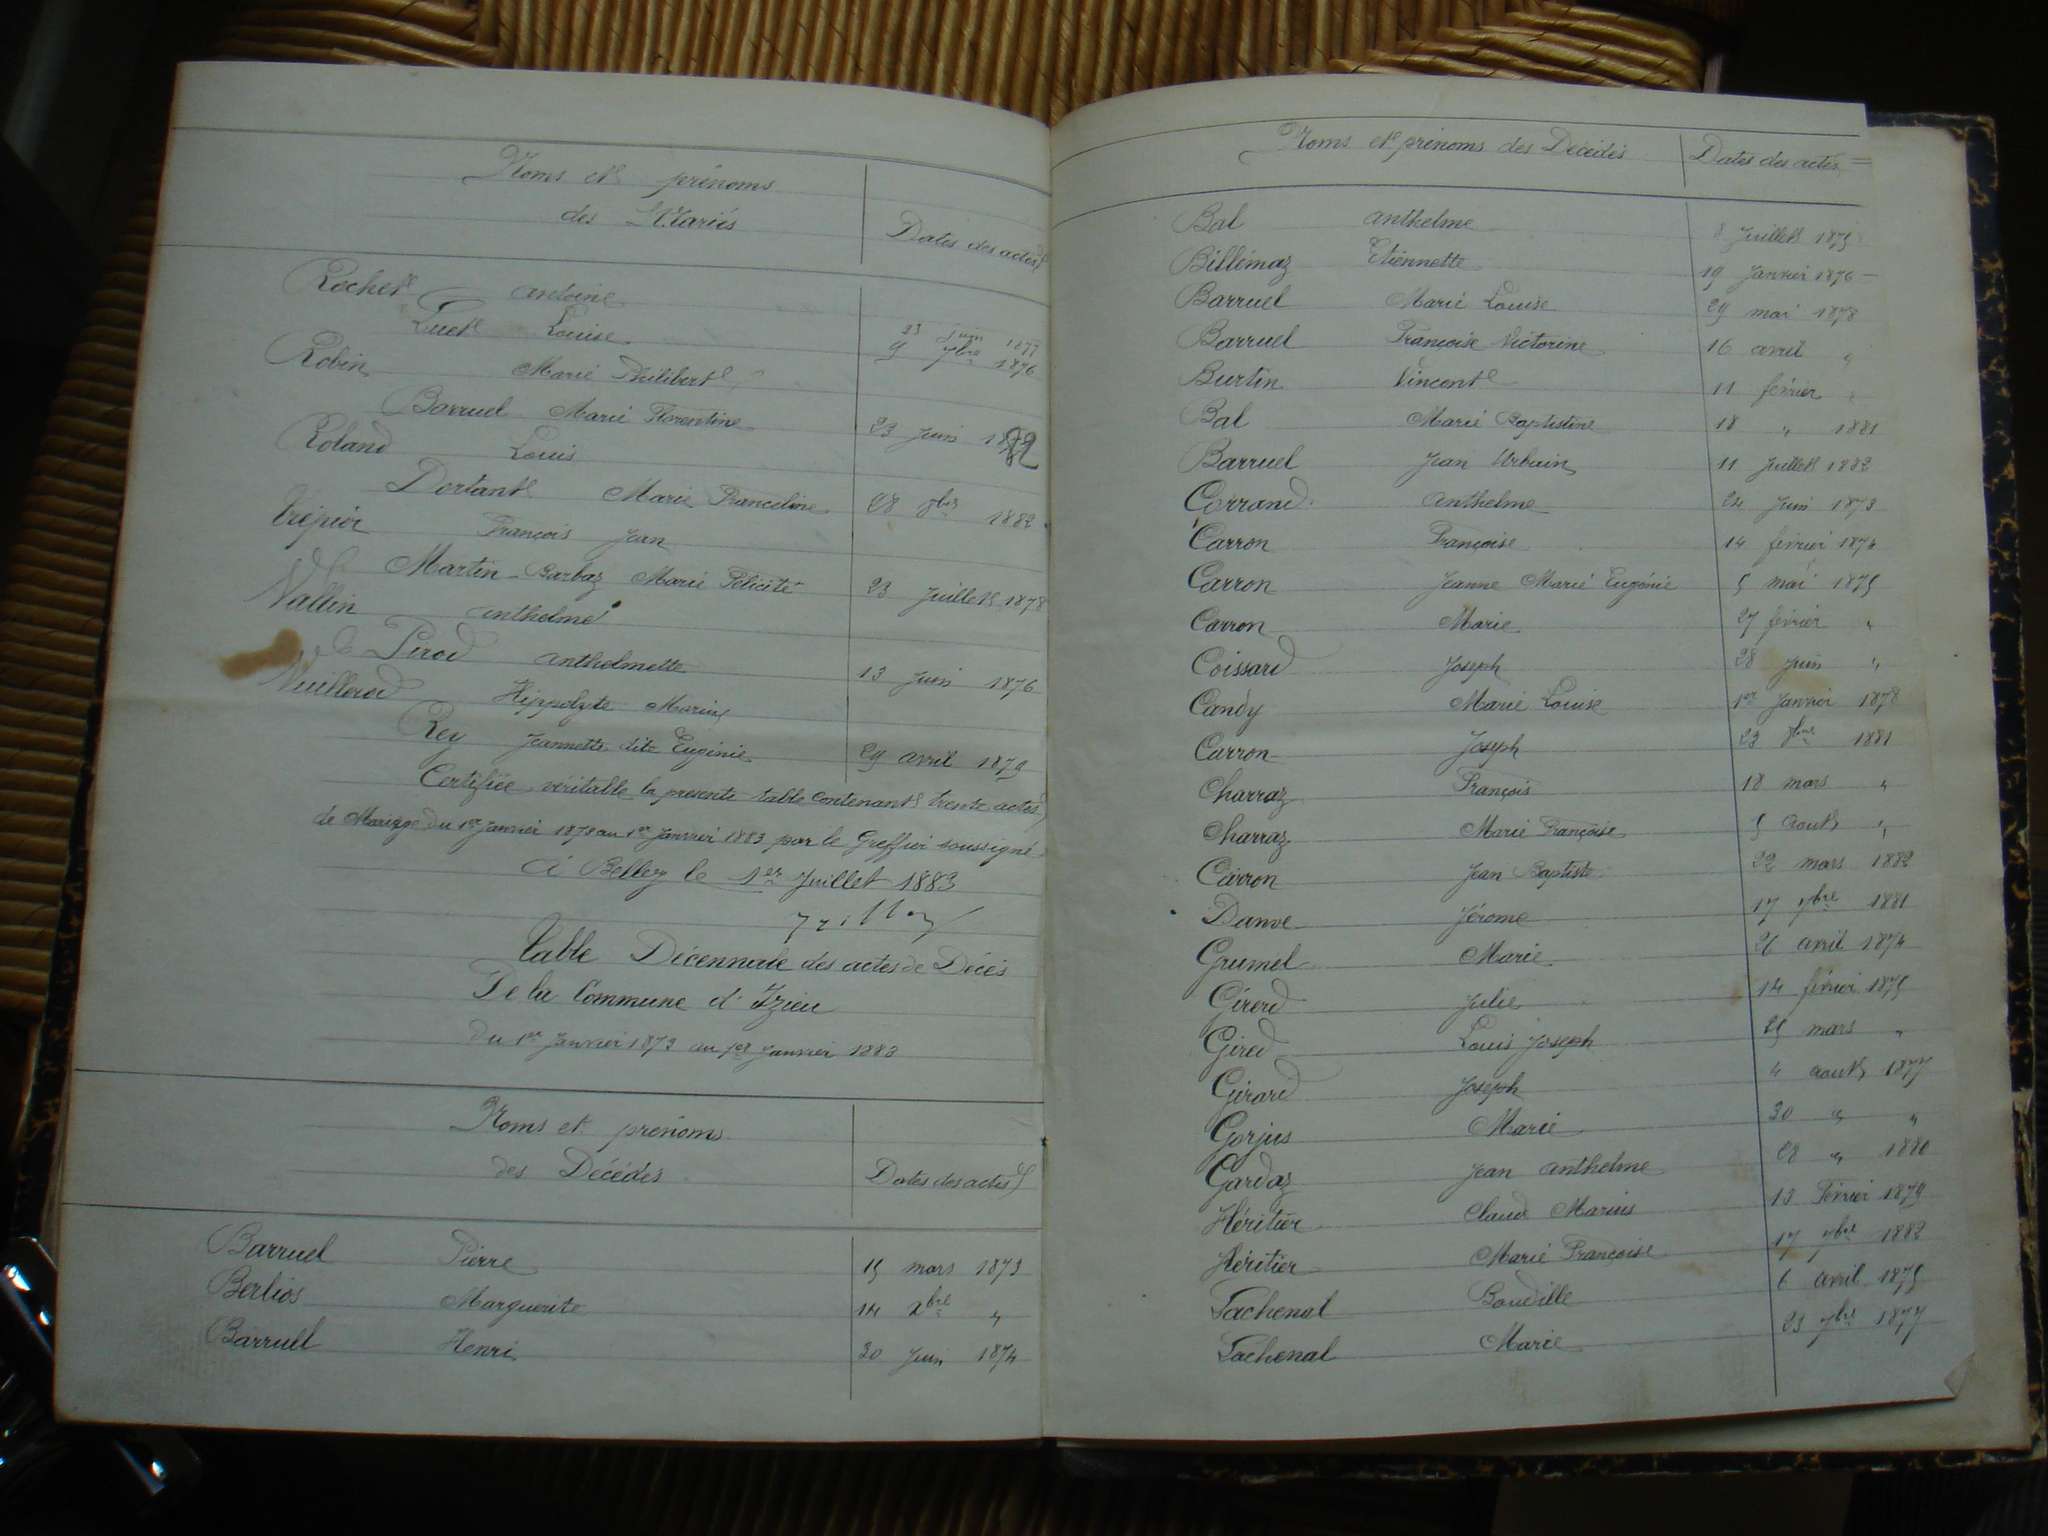 Noms et prénoms
des Mariés
Dates des actes
Rochet antoine
Luet Louise 23 Juin 1877
9 7bre 1876
Robin Marie Philibert
Barruel Marie Florentine 23 Juin 1882
Roland Louis
Dortant Marie Franceline 28 8bre 1882
Trépier François Jean
Martin-Barbaz Marie Félicité 23 Juillet 1878
Vallin anthelme
Pirod anthelmette 13 Juin 1876
Vuillerod Hippolyte Marius
Rey Jeannette dite Eugénie 29 avril 1879
Certifiée véritable la presente table contenant trente actes
de Mariage du 1er Janvier 1873 au 1er Janvier 1883 par le Greffier soussigné
à Belley le 1er Juillet 1883
Table Décennale des actes de Décès
De la Commune d'Izieu
du 1er Janvier 1873 au 1er Janvier 1883
Noms et prénoms
des Décédés
Dates des actes
Barruel Pierre 15 mars 1873
Berlios Marguerite 14 Xbre "
Barruel Henri 30 Juin 1874
Noms et prénoms des Décédés Dates des actes
Bal anthelme 8 Juillet 1875
Billémaz Etiennette 19 Janvier 1876
Barruel Marie Louise 29 mai 1878
Barruel Françoise Victorine 16 avril "
Burtin Vincent 11 février "
Bal Marie Baptistine 18 " 1881
Barruel Jean Urbain 11 Juillet 1882
Corrand anthelme 24 Juin 1873
Carron Françoise 14 février 1874
Carron Jeanne Marie Eugénie 5 mai 1875
Carron Marie 27 février "
Coissard Joseph 28 Juin "
Candy Marie Louise 1er Janvier 1878
Carron Joseph 23 8bre 1881
Charraz François 18 mars "
Charraz Marie Françoise 5 aout "
Carron Jean Baptiste 22 mars 1882
Danve Jérome 17 7bre 1881
Grumel Marie 26 avril 1874
Girerd Julie 14 février 1875
Gired Louis Joseph 25 mars "
Girard Joseph 4 aout 1877
Gorjus Marie 30 " "
Gardaz Jean anthelme 28 " 1880
Héritier Claude Marius 13 Février 1879
Héritier Marie Françoise 17 7bre 1882
Lachenal Boudille 6 avril 1875
Lachenal Marie 23 7bre 1877